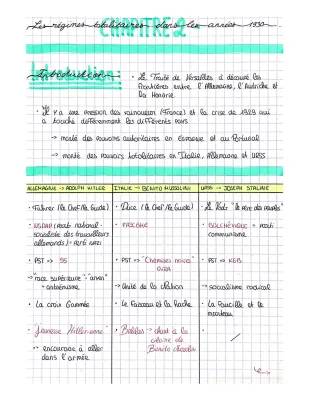 Les régimes totalitaires dans les années 1930
CHAPITRE 2
Introduction
• Le Traité de Versailles a découpé les
frontières entre l'Allemagne, l'Autriche et
la Hongrie
• Il y a une pression des vainqueurs (France) et la crise de 1929 qui
a touché différemment les différents pays
→ montée des pouvoirs autoritaires en Espagne et au Portugal
→ montée des pouvoirs totalitaires en Italie, Allemagne et URSS
ALLEMAGNE → ADOLPH HITLER
ITALIE → BENITO MUSSOLINI
URSS → JOSEPH STALINE
• Führer (le Chef/le Guide)
• Duce (le Chef/le Guide)
"le père des peuples"
• NSDAP (parti national-
socialiste des travailleurs
allemands) = parti nazi
• FASCISME
• BOLCHÉVIQUE = parti
communisme
• PST => SS
• PST => "Chemises noires"
OVRA
• PST => KGB
→ "race supérieure" "aryen"
+ antisémisme
→ Unité de la Nation
→ socialisme radical
• La croix Gammée
• Le Faisceau et la Hache
• La Faucille et le
marteau
• "Jeunesse Hitlérienne"
• Balilas → chant à la
gloire de
Benito Mussolini
• /
→ encourage à aller
dans l'armée